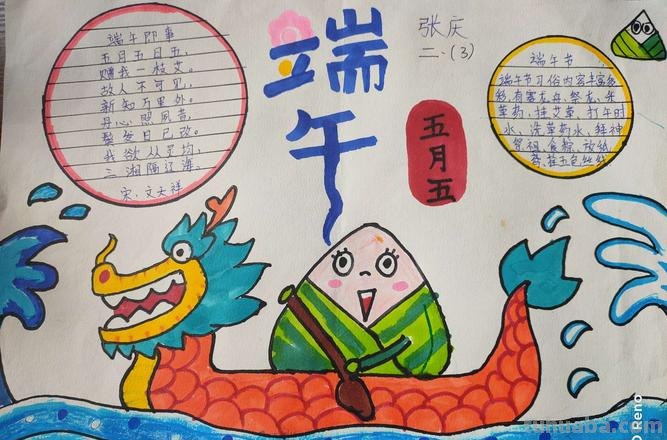 端午即事
五月五日五,
赠我一枝艾。
故人不可见,
新知万里外。
丹心照夙昔,
鬓发日已改。
我欲从灵均,
三湘隔辽海。
宋:文天祥
端午
张庆
二·(3)
五月五
端午节
端午节习俗内容丰富多
彩,有赛龙舟、祭龙、采
草药、挂艾草、打午时
水、洗草药水、拜神
祭祖、食粽、放纸
五色丝线
Reno